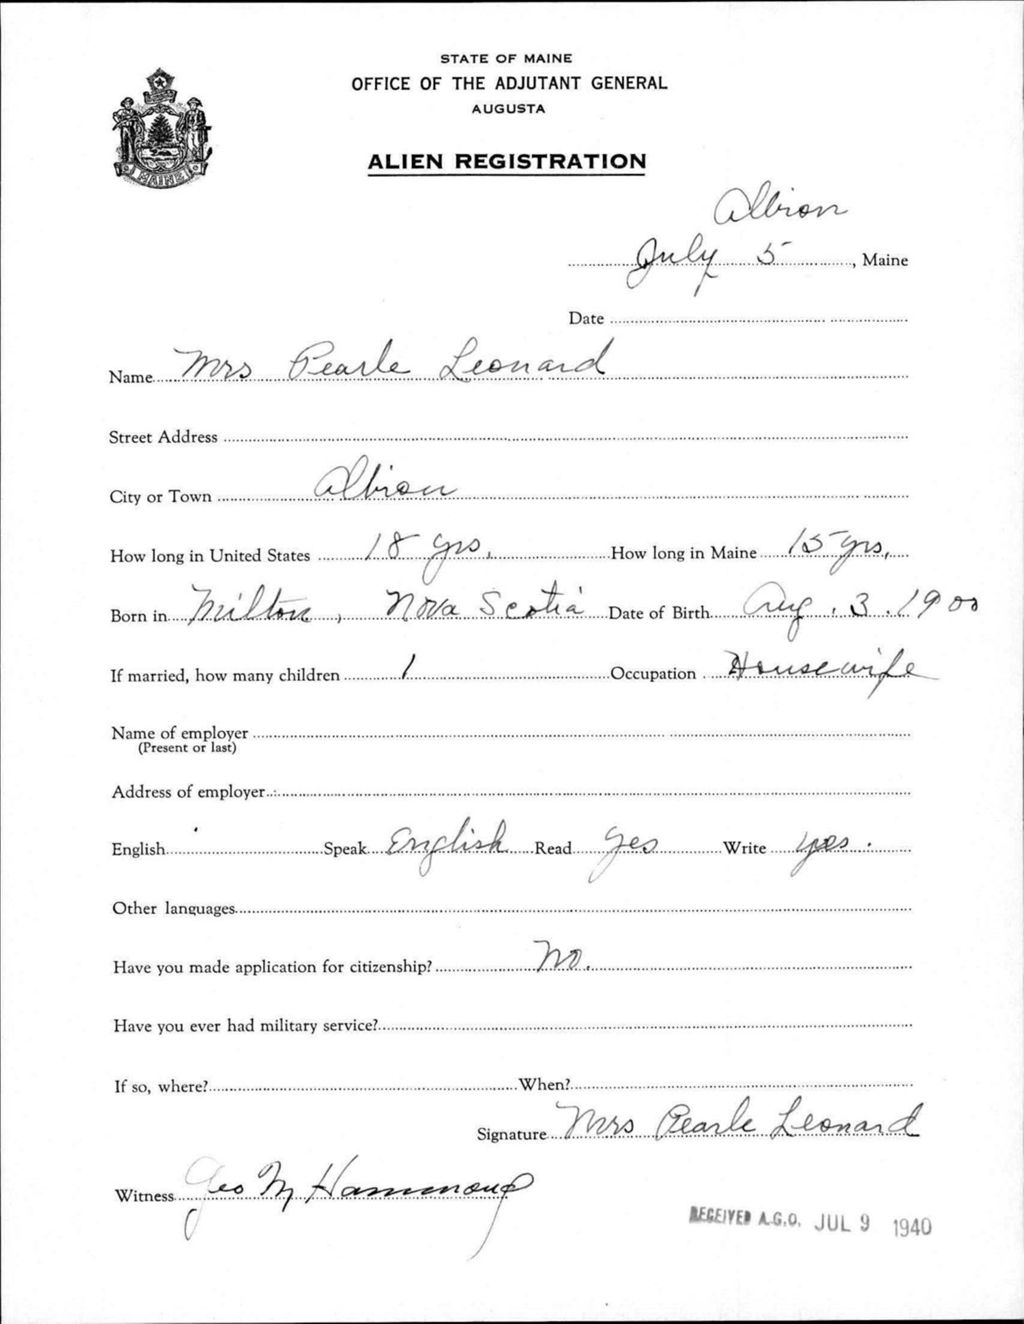 STATE OF MAINE
OFFICE OF THE ADJUTANT GENERAL
AUGUSTA
ALIEN REGISTRATION
MAINE
Albion
July 5, Maine
Date
Name Mrs Pearle Leonard
Street Address
City or Town Albion
How long in United States 18 yrs, How long in Maine 15 yrs,
Born in Milton, Nova Scotia Date of Birth Aug. 3. 1900
If married, how many children 1 Occupation Housewife
Name of employer
(Present or last)
Address of employer
English Speak English Read yes Write yes.
Other languages
Have you made application for citizenship? No.
Have you ever had military service?
If so, where? When?
Signature Mrs Pearle Leonard
Witness Geo M Hammond
RECEIVED A.G.O. JUL 9 1940